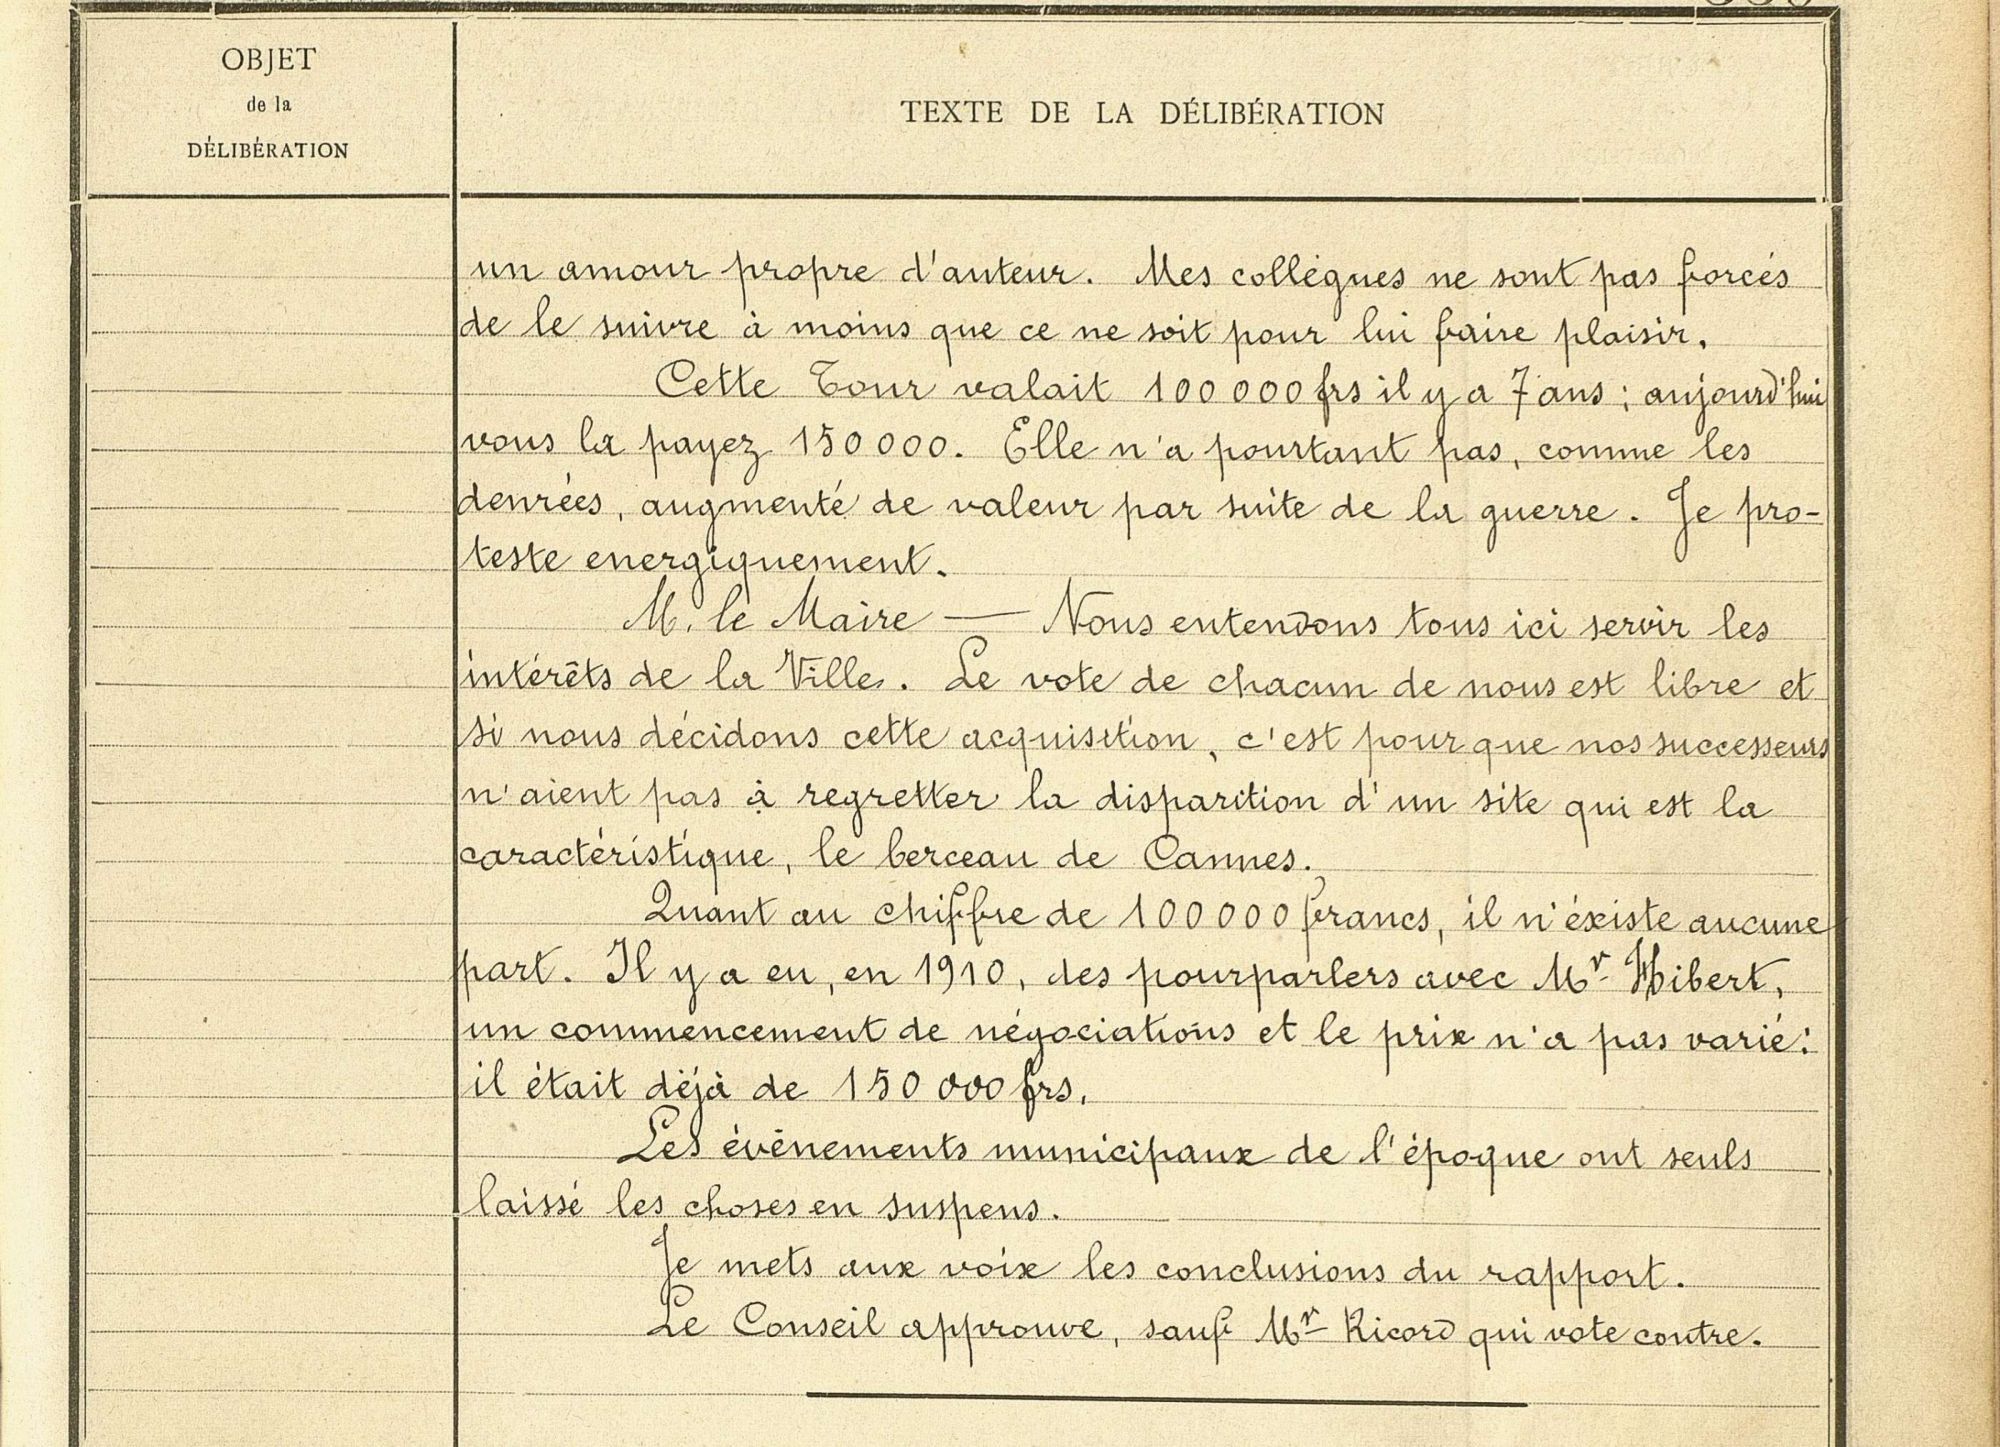 OBJET
de la
DÉLIBÉRATION
TEXTE DE LA DÉLIBÉRATION
un amour propre d'auteur. Mes collègues ne sont pas forcés
de le suivre à moins que ce ne soit pour lui faire plaisir.
Cette Tour valait 100 000 frs il y a 7 ans ; aujourd'hui
vous la payez 150 000. Elle n'a pourtant pas, comme les
denrées, augmenté de valeur par suite de la guerre. Je pro-
teste energiquement.
M. le Maire — Nous entendons tous ici servir les
intérêts de la Ville. Le vote de chacun de nous est libre et
si nous décidons cette acquisition, c'est pour que nos successeurs
n'aient pas à regretter la disparition d'un site qui est la
caractéristique, le berceau de Cannes.
Quant au chiffre de 100 000 francs, il n'éxiste aucune
part. Il y a eu, en 1910, des pourparlers avec Mr Hibert,
un commencement de négociations et le prix n'a pas varié :
il était déjà de 150 000 frs.
Les évènements municipaux de l'époque ont seuls
laissé les choses en suspens.
Je mets aux voix les conclusions du rapport.
Le Conseil approuve, sauf Mr Ricord qui vote contre.